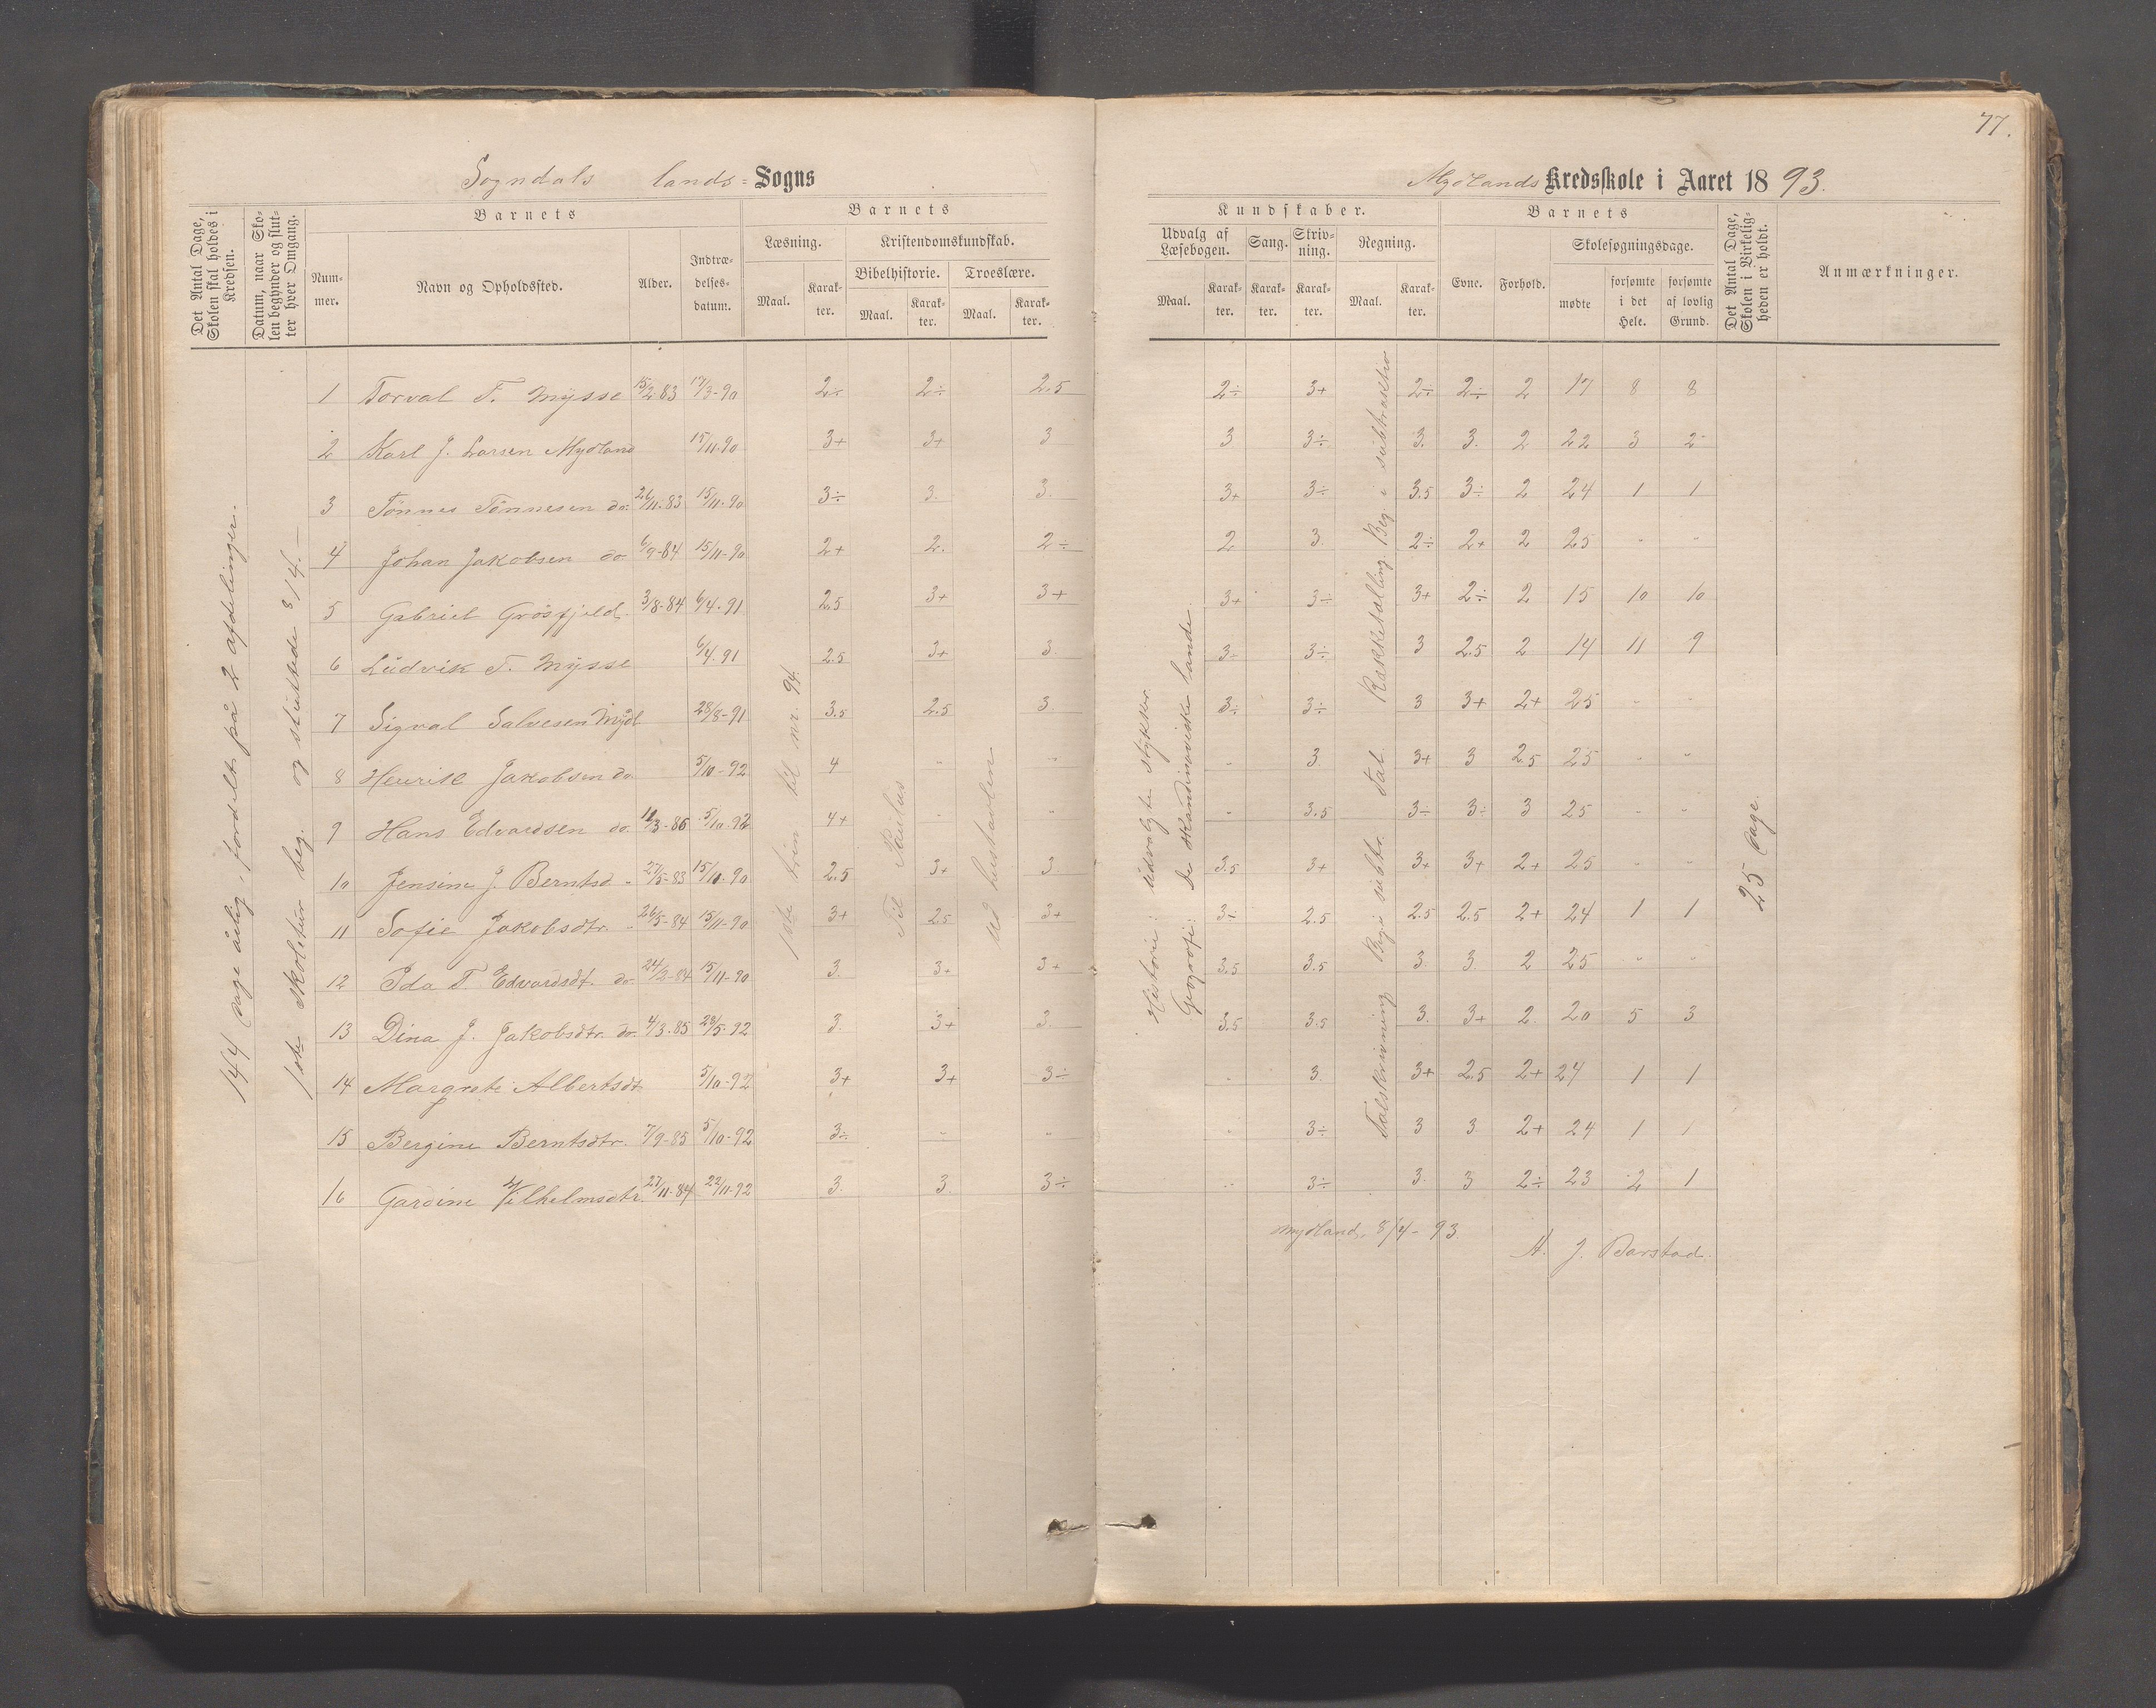 77.
Sogndals lands= Sogns
Mydlands Kredsskole i Aaret 1893.
Det Antal Dage, Skolen skal holdes i Kredsen.
Datum, naar Skolen begynder og slutter hver Omgang.
Barnets
Nummer.
Navn og Opholdssted.
Alder.
Indtrædelsesdatum.
Barnets
Læsning.
Maal.
Karakter.
Kristendomskundskab.
Bibelhistorie.
Maal.
Karakter.
Troeslære.
Maal.
Karakter.
Kundskaber.
Udvalg af Læsebogen.
Maal.
Karakter.
Sang.
Karakter.
Skrivning.
Karakter.
Regning.
Maal.
Karakter.
Barnets
Evne.
Forhold.
Skolesøgningsdage.
mødte
forsømte i det Hele.
forsømte af lovlig Grund.
Det Antal Dage, Skolen i Virkeligheden er holdt.
Anmærkninger.
144 dage årlig, fordelt på 2 afdelinger.
1ste skoletur beg. og sluttede 8/4. —
1ste trin til nr. 94.
Til Paulus
Ud hustavlen
Historie: Udvalgte stykker.
Geografi: De skandinaviske lande.
Talskrivning Beg. i subtr. Tal. Rækketælling Beg. i subtraktio
25 dage.
1 Torval T. Mysse 15/2 83 17/3-90 2÷ 2÷ 2.5 2÷ 3+ 2÷ 2÷ 2 17 8 8
2 Karl J. Larsen Mydland 15/11-90 3+ 3+ 3 3 3÷ 3. 3. 2 22 3 2
3 Tönnes Tönnesen do. 26/11-83 15/11-90 3÷ 3. 3. 3+ 3÷ 3.5 3÷ 2 24 1 1
4 Johan Jakobsen do 6/9-84 15/11-90 2+ 2. 2÷ 2 3 2÷ 2+ 2 25 " "
5 Gabriel Grösfjeld. 3/8-84 6/4-91 2.5 3+ 3+ 3+ 3÷ 3+ 2÷ 2 15 10 10
6 Ludvik T. Mysse 6/4.91 2.5 3+ 3. 3÷ 3÷ 3 2.5 2 14 11 9
7 Sigval Salvesen Mydl 28/8-91 3.5 2.5 3. 3÷ 3÷ 3 3+ 2+ 25 " "
8 Henrik Jakobsen do 5/10-92 4 " " " 3 3+ 3 2.5 25 " "
9 Hans Edvardsen do. 11/3-86 5/10.92 4+ " " " 3.5 3÷ 3÷ 3 25 " "
10 Jensine J. Berntsd " 27/5-83 15/10-90 2.5 3+ 3. 3.5 3+ 3+ 3+ 2+ 25 " "
11 Sofie Jakobsdtr. " 26/5-84 15/11-90 3+ 2.5 3+ 3÷ 2.5 2.5 2.5 2+ 24 1 1
12 Ida T. Edvardsdt. do. 24/2-84 15/11-90 3. 3+ 3+ 3.5 3.5 3. 3. 2 25 " "
13 Dina J. Jakobsdtr. do. 4/3.85 23/5-92 3. 3+ 3. 3.5 3.5 3. 3+ 2. 20 5 3
14 Margrete Albertsdt 5/10-92 3+ 3+ 3÷ " 3. 3+ 2.5 2+ 24 1 1
15 Bergine Berntsdtr. 7/9-85 5/10-92 3÷ " " " 3÷ 3 3. 2+ 24 1 1
16 Gardine Vilhelmsdtr. 27/11-84 22/11-92 3. 3. 3÷ " 3÷ 3. 3 2÷ 23 2 1
Mydland, 8/4-93.
A. J. Barstad.